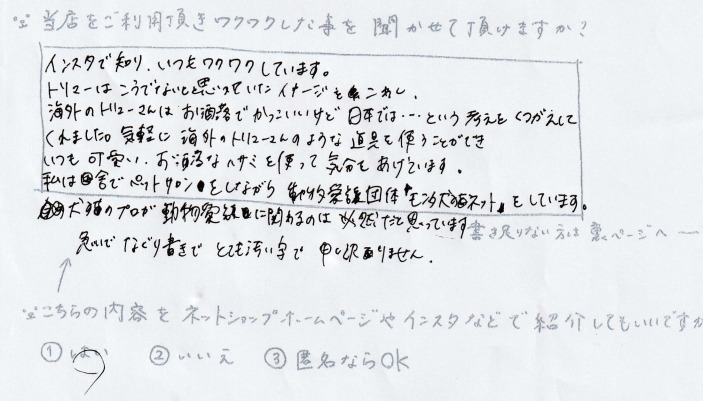 ※当店をご利用頂きワクワクした事を聞かせて頂けますか？
インスタで知り、いつもワクワクしています。
トリマーはこうでないとと思いこんでいたイメージをこわし、
海外のトリマーさんはお洒落でかっこいいけど日本では…という考えをくつがえして
くれました。気軽に海外のトリマーさんのような道具を使うことができ
いつも可愛い、お洒落なハサミを使って気分をあげています。
私は田舎でペットサロンをしながら動物愛護団体「犬猫ネット」をしています。
犬猫のプロが動物愛護に関わるのは必然だと思っています
書き足りない方は裏ページへ
急いでなぐり書きでとても汚い字で申し訳ありません。
※こちらの内容をネットショップホームページやインスタなどで紹介してもいいですか
①はい ②いいえ ③匿名ならOK